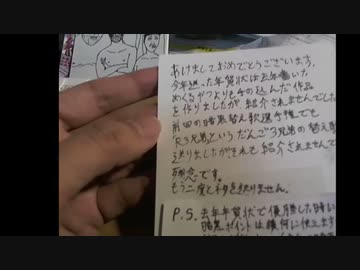 あけましておめでとうございます。
今年送った年賀状は去年書いた
めくるがつよりも手の込んだ作品
を作りましたが、紹介されませんでした
前回の暗黒替え歌選手権でも
「R3兄弟」というだんご3兄弟の替え歌
送りましたがそれも紹介されませんで
残念です。
もう二度とネタを送りません。
P.S. 去年年賀状で優勝した時に
暗黒ポイントは何に使えます